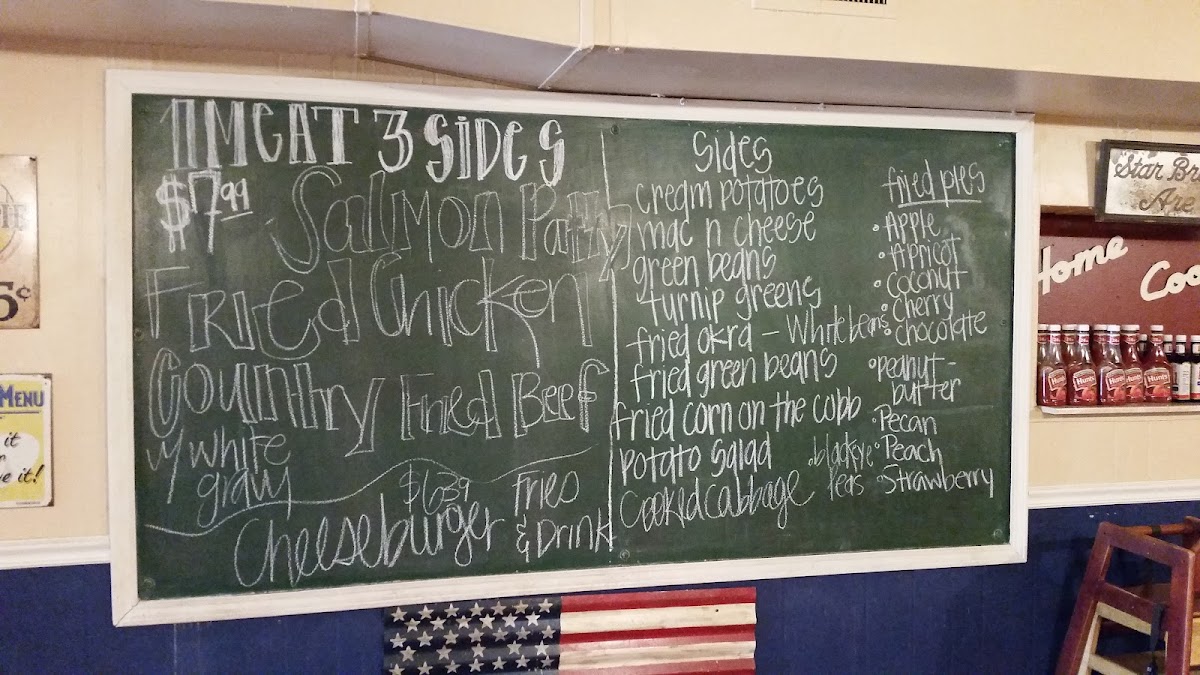 1 MEAT 3 SIDES
$7.99
Salmon Patty
Fried Chicken
Country Fried Beef
w/ white
gravy
$6.39
Cheeseburger
Fries
& Drink
Sides
cream potatoes
mac n cheese
green beans
turnip greens
fried okra — White beans
fried green beans
fried corn on the cobb
potato salad
Cooked cabbage
• blackeye
Peas
fried pies
• Apple
• Apricot
• Coconut
• Cherry
• chocolate
• peanut-
butter
• Pecan
• Peach
• Strawberry
5¢
MENU
it
e it!
Star Br
Are
Home
Coo
Hunt's
Hunt's
Hunt's
Hunt's
Hunt's